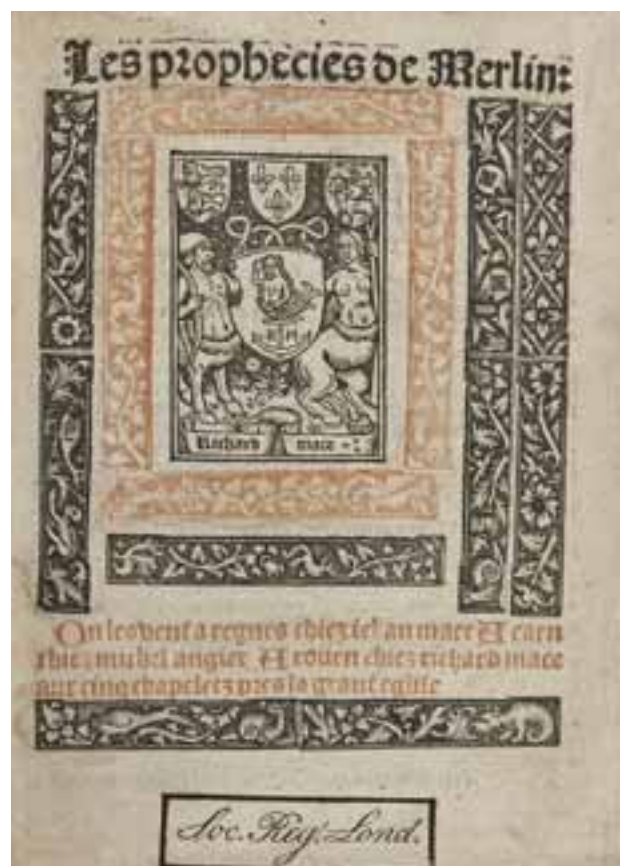 Les prophecies de Merlin:
Richard mace
On les vent a regnes chiez iehan mace A caen
chiez michel angier A rouen chiez richard mace
aux cinq chapeletz pres la grant eglise
Soc. Reg. Lond.